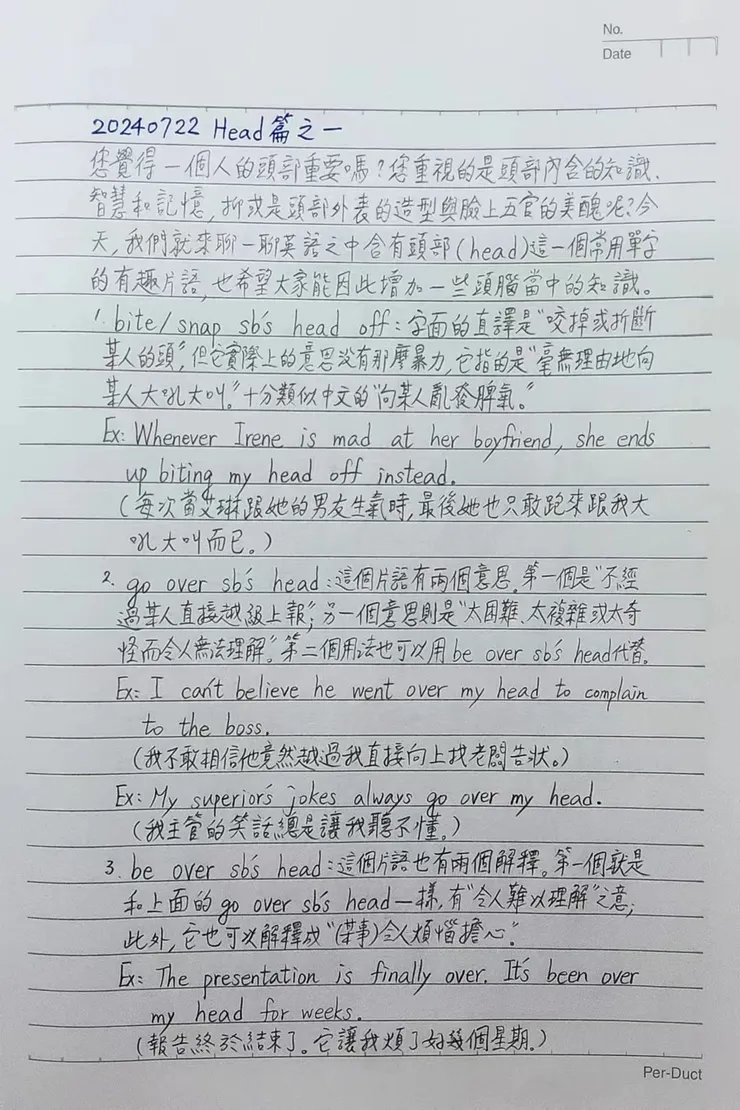 No.
Date
20240722 Head篇之一
您覺得一個人的頭部重要嗎?您重視的是頭部內含的知識、
智慧和記憶,抑或是頭部外表的造型與臉上五官的美醜呢?今
天,我們就來聊一聊英語之中含有頭部(head)這一個常用單字
的有趣片語,也希望大家能因此增加一些頭腦當中的知識。
1. bite/snap sb's head off:字面的直譯是"咬掉或折斷
某人的頭",但它實際上的意思沒有那麼暴力,它指的是"毫無理由地向
某人大吼大叫。"十分類似中文的"向某人亂發脾氣。"
Ex: Whenever Irene is mad at her boyfriend, she ends
up biting my head off instead.
(每次當艾琳跟她的男友生氣時,最後她也只敢跑來跟我大
吼大叫而已。)
2. go over sb's head:這個片語有兩個意思。第一個是"不經
過某人直接越級上報";另一個意思則是"太困難、太複雜或太奇
怪而令人無法理解。"第二個用法也可以用be over sb's head代替。
Ex: I can't believe he went over my head to complain
to the boss.
(我不敢相信他竟然越過我直接向上找老闆告狀。)
Ex: My superior's jokes always go over my head.
(我主管的笑話總是讓我聽不懂。)
3. be over sb's head:這個片語也有兩個解釋。第一個就是
和上面的go over sb's head一樣,有"令人難以理解"之意;
此外,它也可以解釋成"(某事)令人煩惱擔心"。
Ex: The presentation is finally over. It's been over
my head for weeks.
(報告終於結束了。它讓我煩了好幾個星期。)
Per-Duct